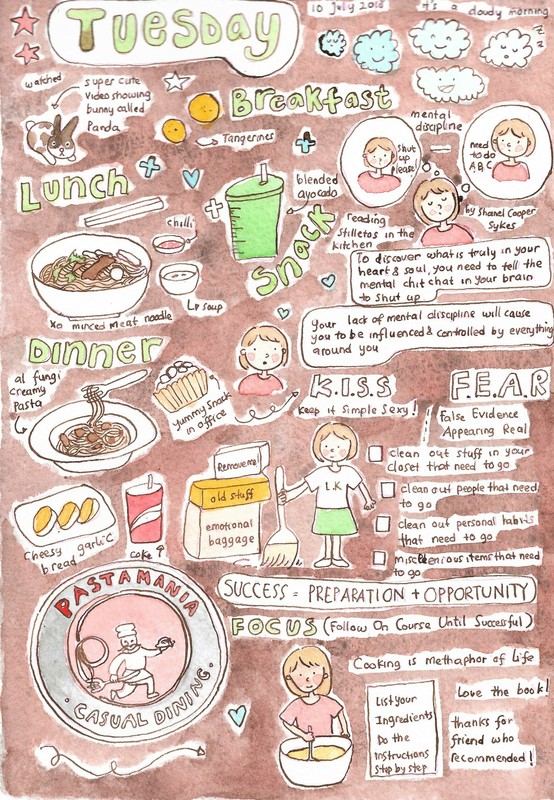 Tuesday
10 July 2018
it's a cloudy morning
watched
super cute
video showing
bunny called
Panda
Breakfast
Tangerines
mental
discipline
shut
up
please!
need
to do
A,B,C
Lunch
chilli
XO minced meat noodle
soup
blended
avocado
Snack
reading
Stilletos in the
kitchen
by Shanel Cooper
Sykes
To discover what is truly in your
heart & soul, you need to tell the
mental chit chat in your brain
to shut up
Your lack of mental discipline will cause
you to be influenced & controlled by everything
around you
Dinner
al fungi
creamy
Pasta
yummy snack
in office
K.I.S.S
keep it Simple Sexy!
F.E.A.R
False Evidence
Appearing Real
Cheesy garlic
bread
coke
Remove me!
old stuff
emotional
baggage
L.K
clean out stuff in your
closet that need to go
clean out people that need
to go
clean out personal habits
that need to go
items that need
to go
SUCCESS = PREPARATION + OPPORTUNITY
FOCUS (Follow On Course Until Successful)
PASTAMANIA
CASUAL DINING
Cooking is methaphor of Life
List your
Ingredients
Do the
Instructions
step by step
Love the book!
thanks for
friend who
recommended!